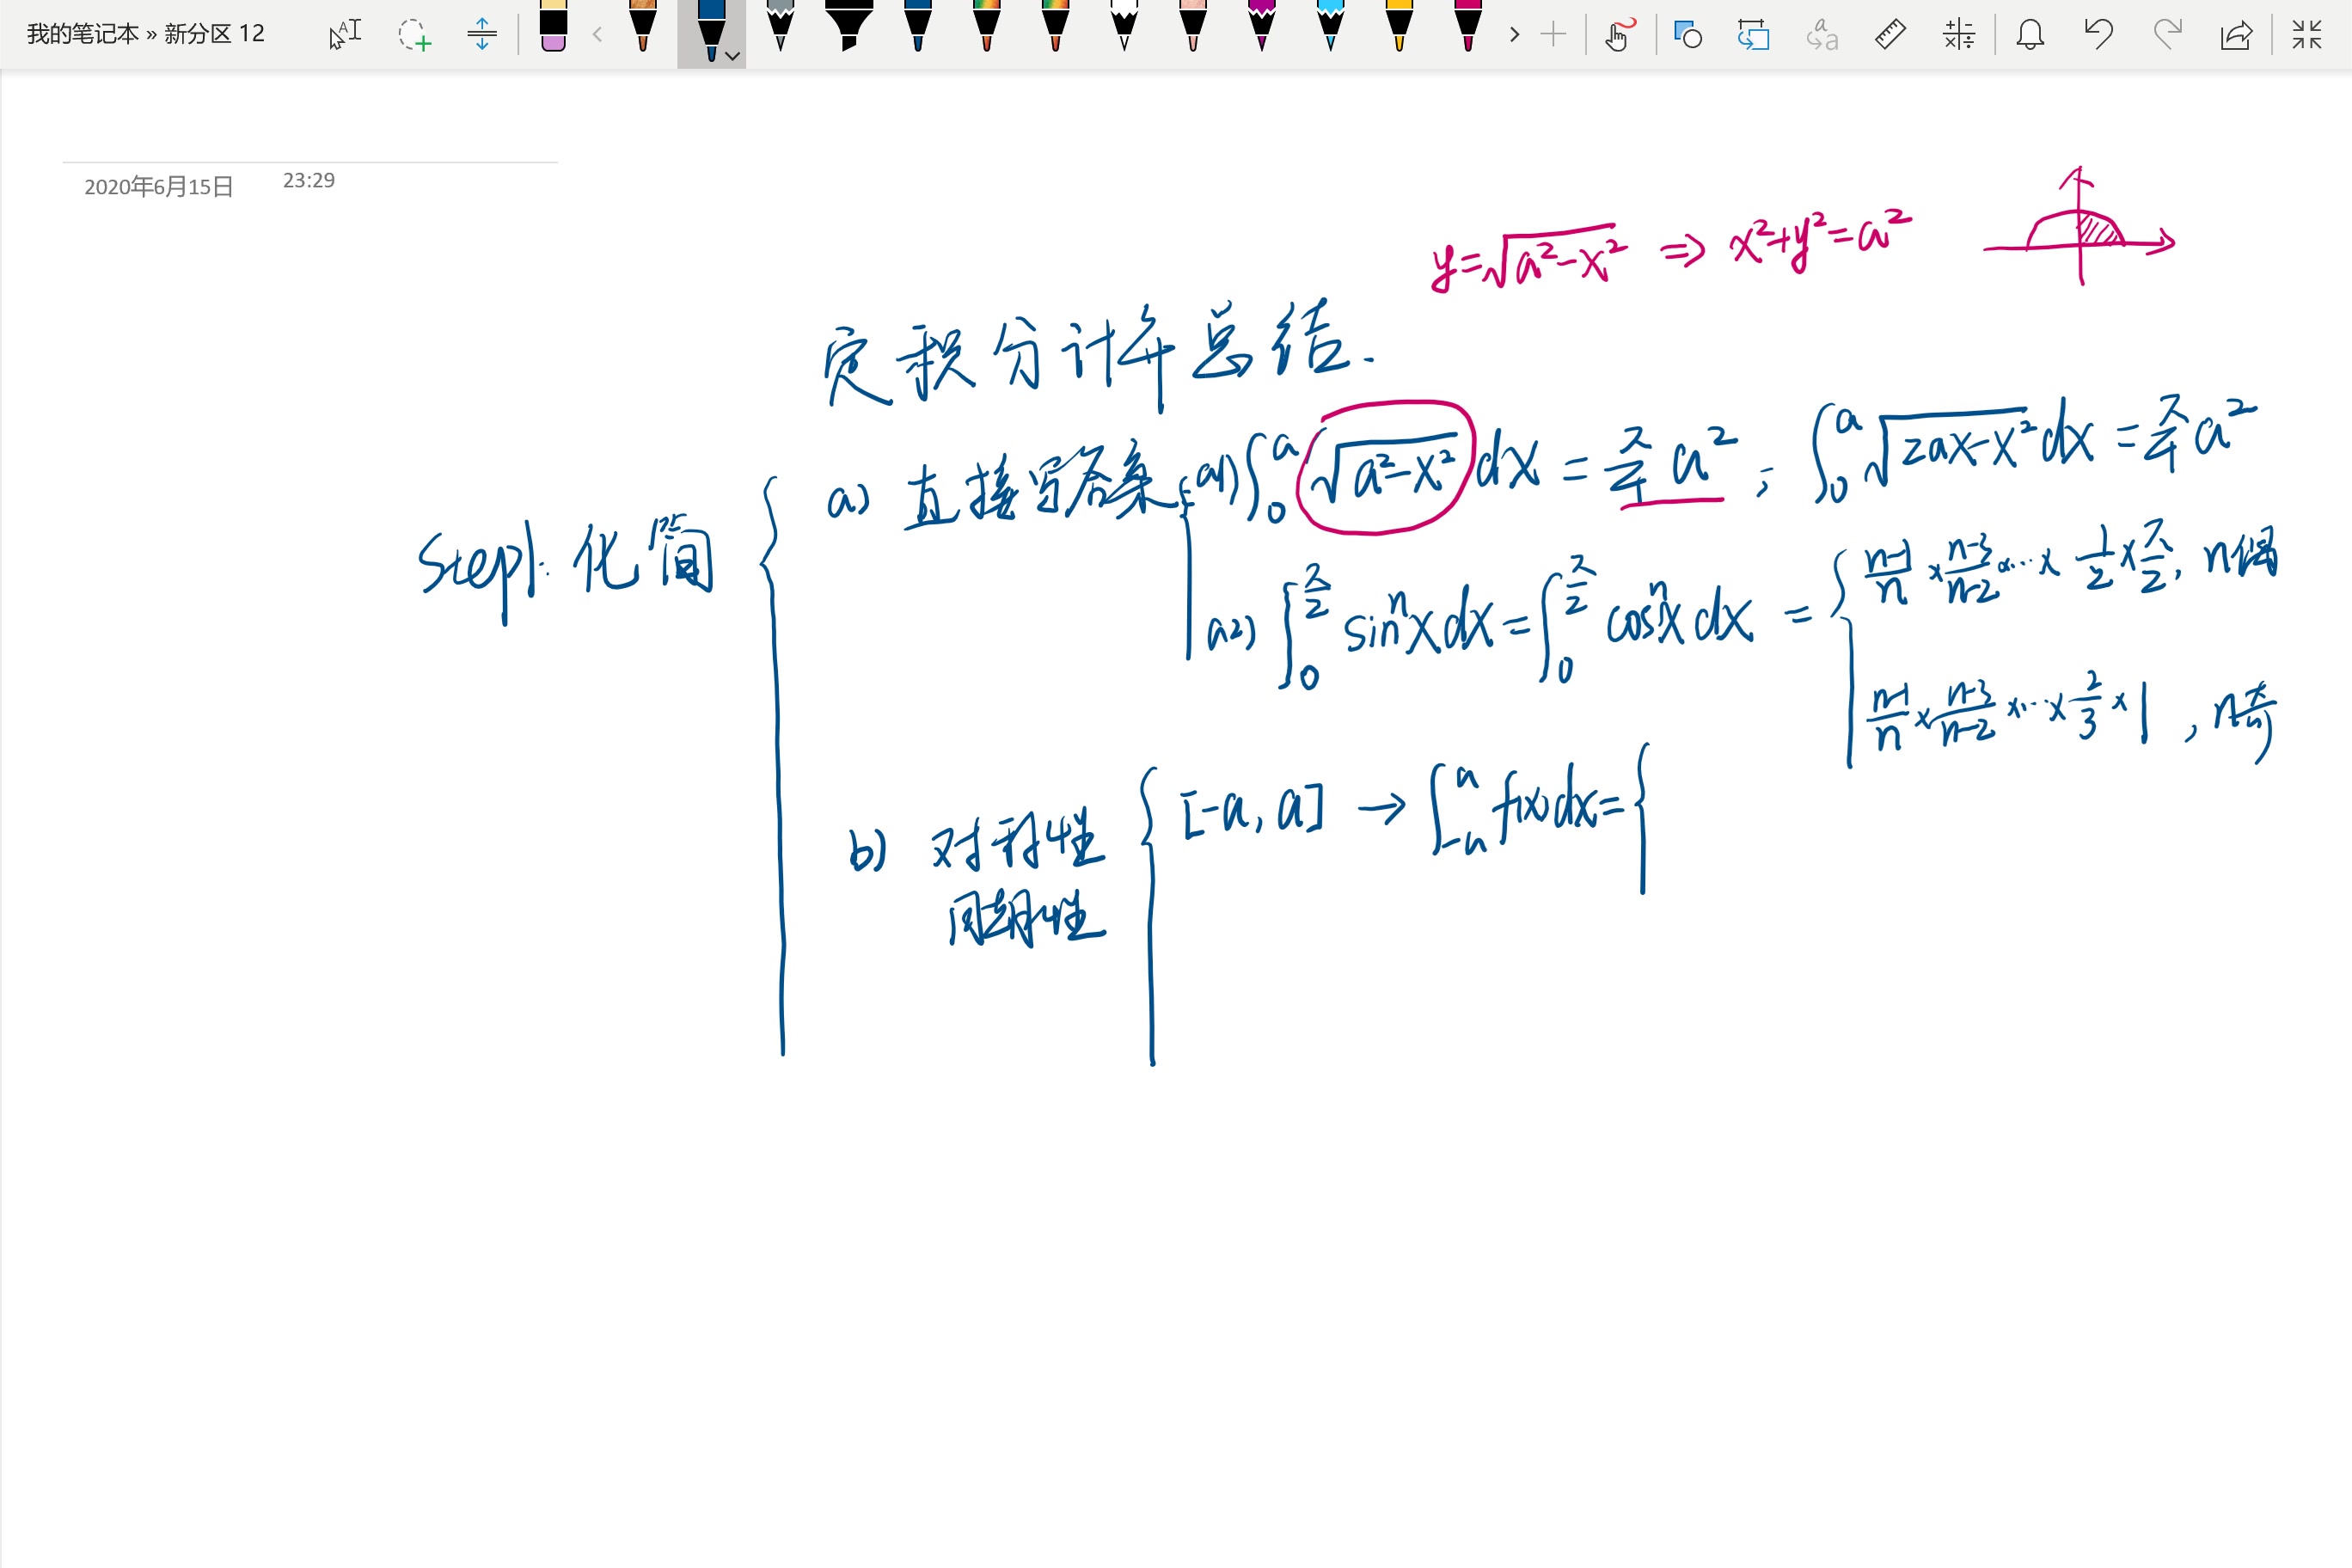 我的笔记本 » 新分区 12
2020年6月15日 23:29
y=√(a²-x²) ⇒ x²+y²=a²
定积分计算总结.
Step1: 化简
a) 直接写答案
a1) ∫₀^a √(a²-x²) dx = π/4 a² ; ∫₀^a √(2ax-x²) dx = π/4 a²
a2) ∫₀^(π/2) sinⁿx dx = ∫₀^(π/2) cosⁿx dx = { (n-1)/n × (n-3)/(n-2) × ⋯ × 1/2 × π/2, n偶
(n-1)/n × (n-3)/(n-2) × ⋯ × 2/3 × 1, n奇
b) 对称性
周期性
[-a, a] → ∫₋ₐ^a f(x)dx = {